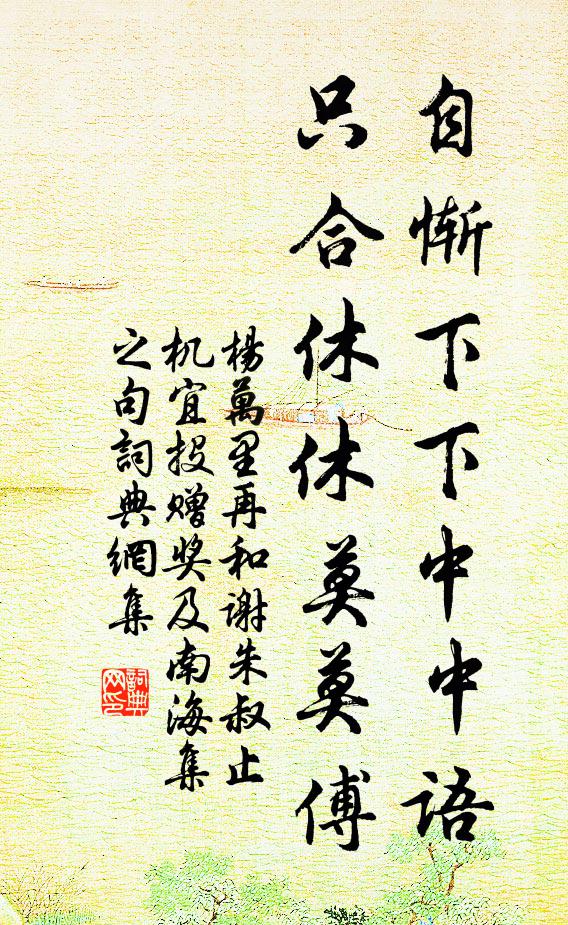 自惭下下中中语
只合休休莫莫傅
楊萬里再和谢朱叔止
机宜投赠奖及南海集
之句詞典網集
詞典
网印